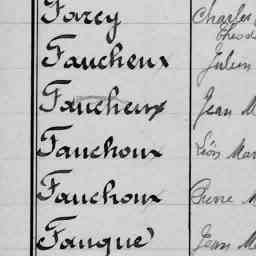 Farcy Charles
Faucheux Julien
Faucheux Jean M
Fauchoux Léon Mar
Fauchoux Pierre M
Fauque Jean M